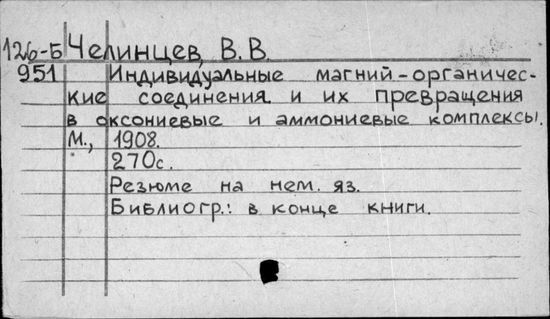 126-Б Челинцев, В.В.
951 Индивидуальные магний-органичес-
кие соединения и их превращения
в оксониевые и аммониевые комплексы.
М., 1908.
270с.
Резюме на нем. яз.
Библиогр.: в конце книги.